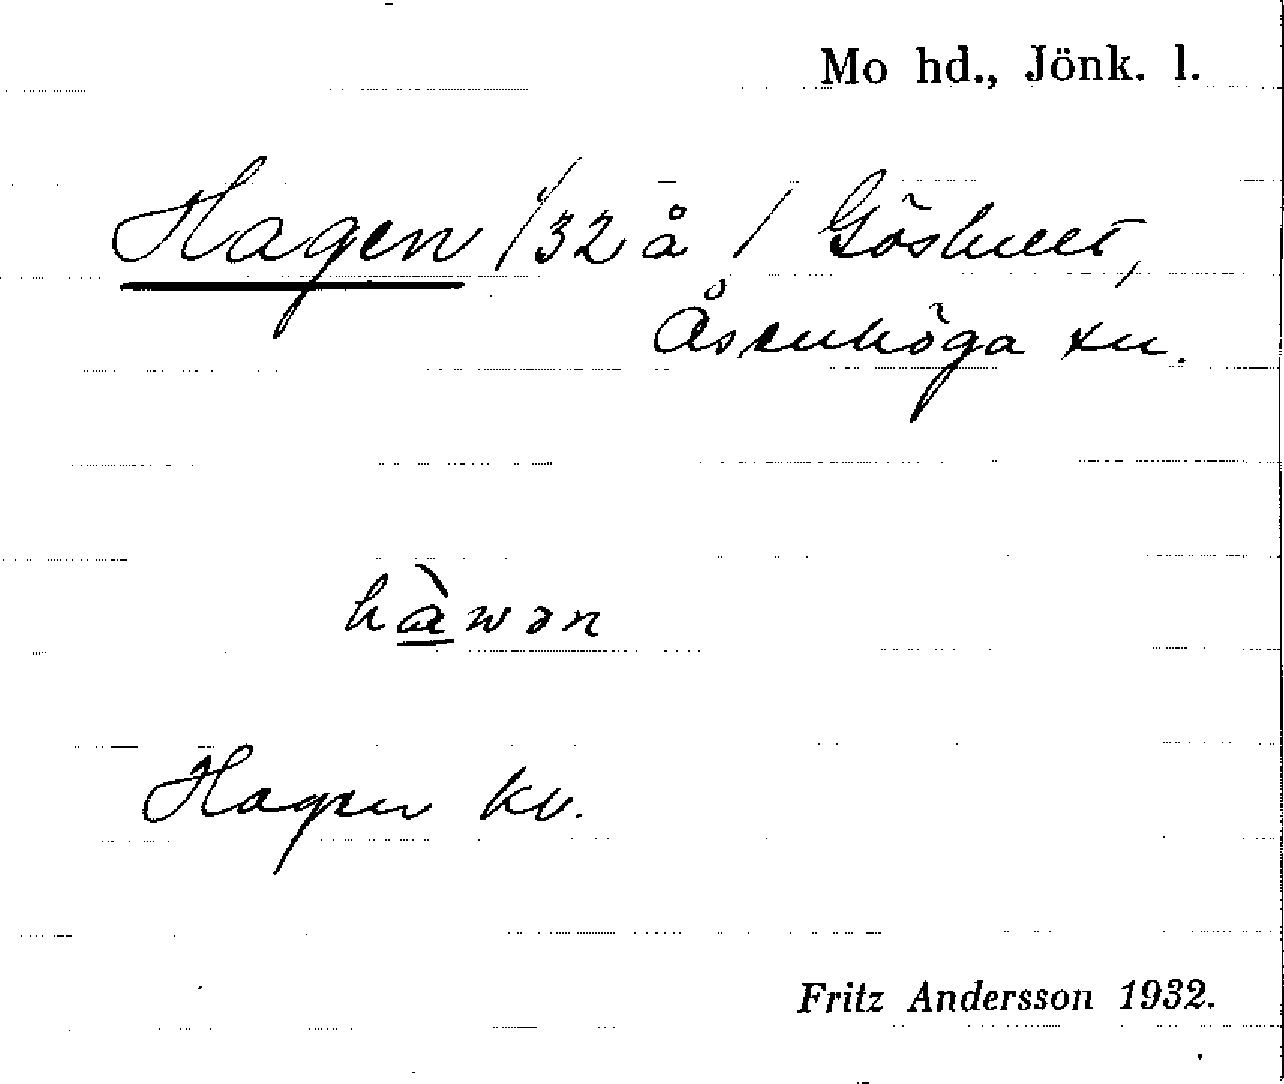 Mo hd., Jönk. l.
Hagen 1/32 å 1 Göshult,
Åsenhöga sn.
hàwən
Hagen kv.
Fritz Andersson 1932.